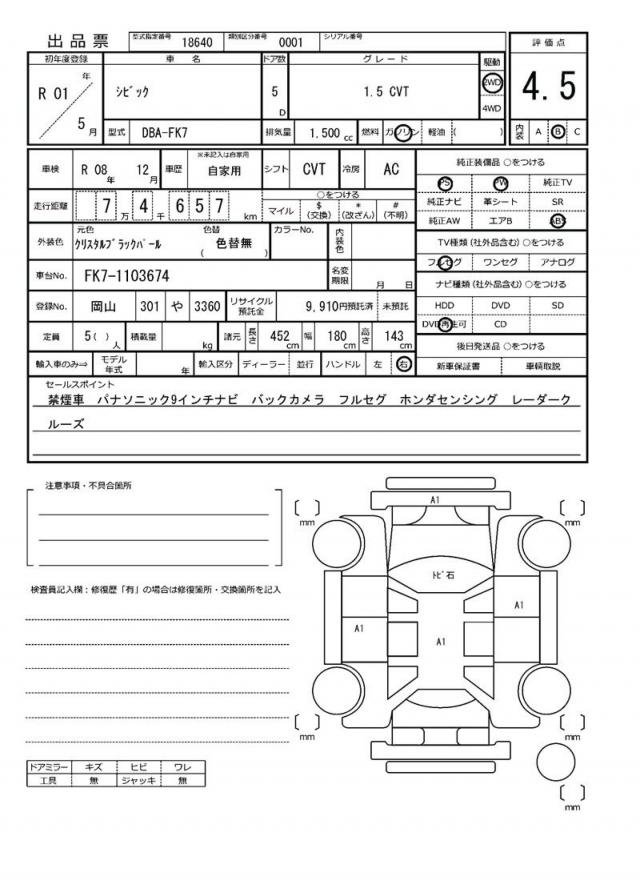 出品票 型式指定番号 18640 類別区分番号 0001 シリアル番号
評価点
4.5
初年度登録 車名 ドア数 グレード 駆動
R 01 年 5 月 シビック 5 D 1.5 CVT 2WD 4WD
型式 DBA-FK7 排気量 1.500 cc 燃料 ガソリン 軽油 ( ) 内装 A B C
車検 R 08 年 12 月 車歴 ※未記入は自家用 自家用 シフト CVT 冷房 AC
走行距離 7 万 4 千 6 5 7 km ○をつける
マイル $ (交換) * (改ざん) # (不明)
外装色 元色 クリスタルブラックパール 色替 ( 色替無 ) カラーNo. 内装色
車台No. FK7-1103674 名変期限 月 日
登録No. 岡山 301 や 3360 リサイクル預託金 9,910円預託済 未預託
定員 5( ) 人 積載量 kg 諸元 長さ 452 cm 幅 180 cm 高さ 143 cm
輸入車のみ⇒ モデル年式 年 輸入区分 ディーラー 並行 ハンドル 左 右
純正装備品 ○をつける
PS PW 純正TV
純正ナビ 革シート SR
純正AW エアB ABS
TV種類(社外品含む)○をつける
フルセグ ワンセグ アナログ
ナビ種類(社外品含む)○をつける
HDD DVD SD
DVD再生可 CD
後日発送品 ○をつける
新車保証書 車輌取説
セールスポイント
禁煙車 パナソニック9インチナビ バックカメラ フルセグ ホンダセンシング レーダーク
ルーズ
注意事項・不具合箇所
検査員記入欄:修復歴「有」の場合は修復箇所・交換箇所を記入
A1
mm
mm
トビ石
A1
A1
A1
mm
mm
mm
ドアミラー キズ ヒビ ワレ
工具 無 ジャッキ 無